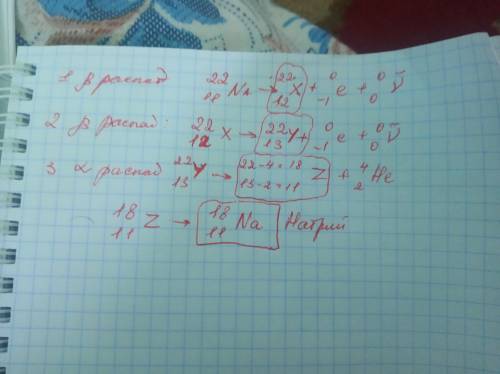 1 β распад ²²₁₁Na → ²²₁₂X + ⁰₋₁e + ⁰₀ν̃
2 β распад. ²²₁₂X → ²²₁₃Y + ⁰₋₁e + ⁰₀ν̃
3 α распад ²²₁₃Y → ²²⁻⁴⁼¹⁸₁₃₋₂₌₁₁Z + ⁴₂He
¹⁸₁₁Z → ¹⁸₁₁Na Натрий